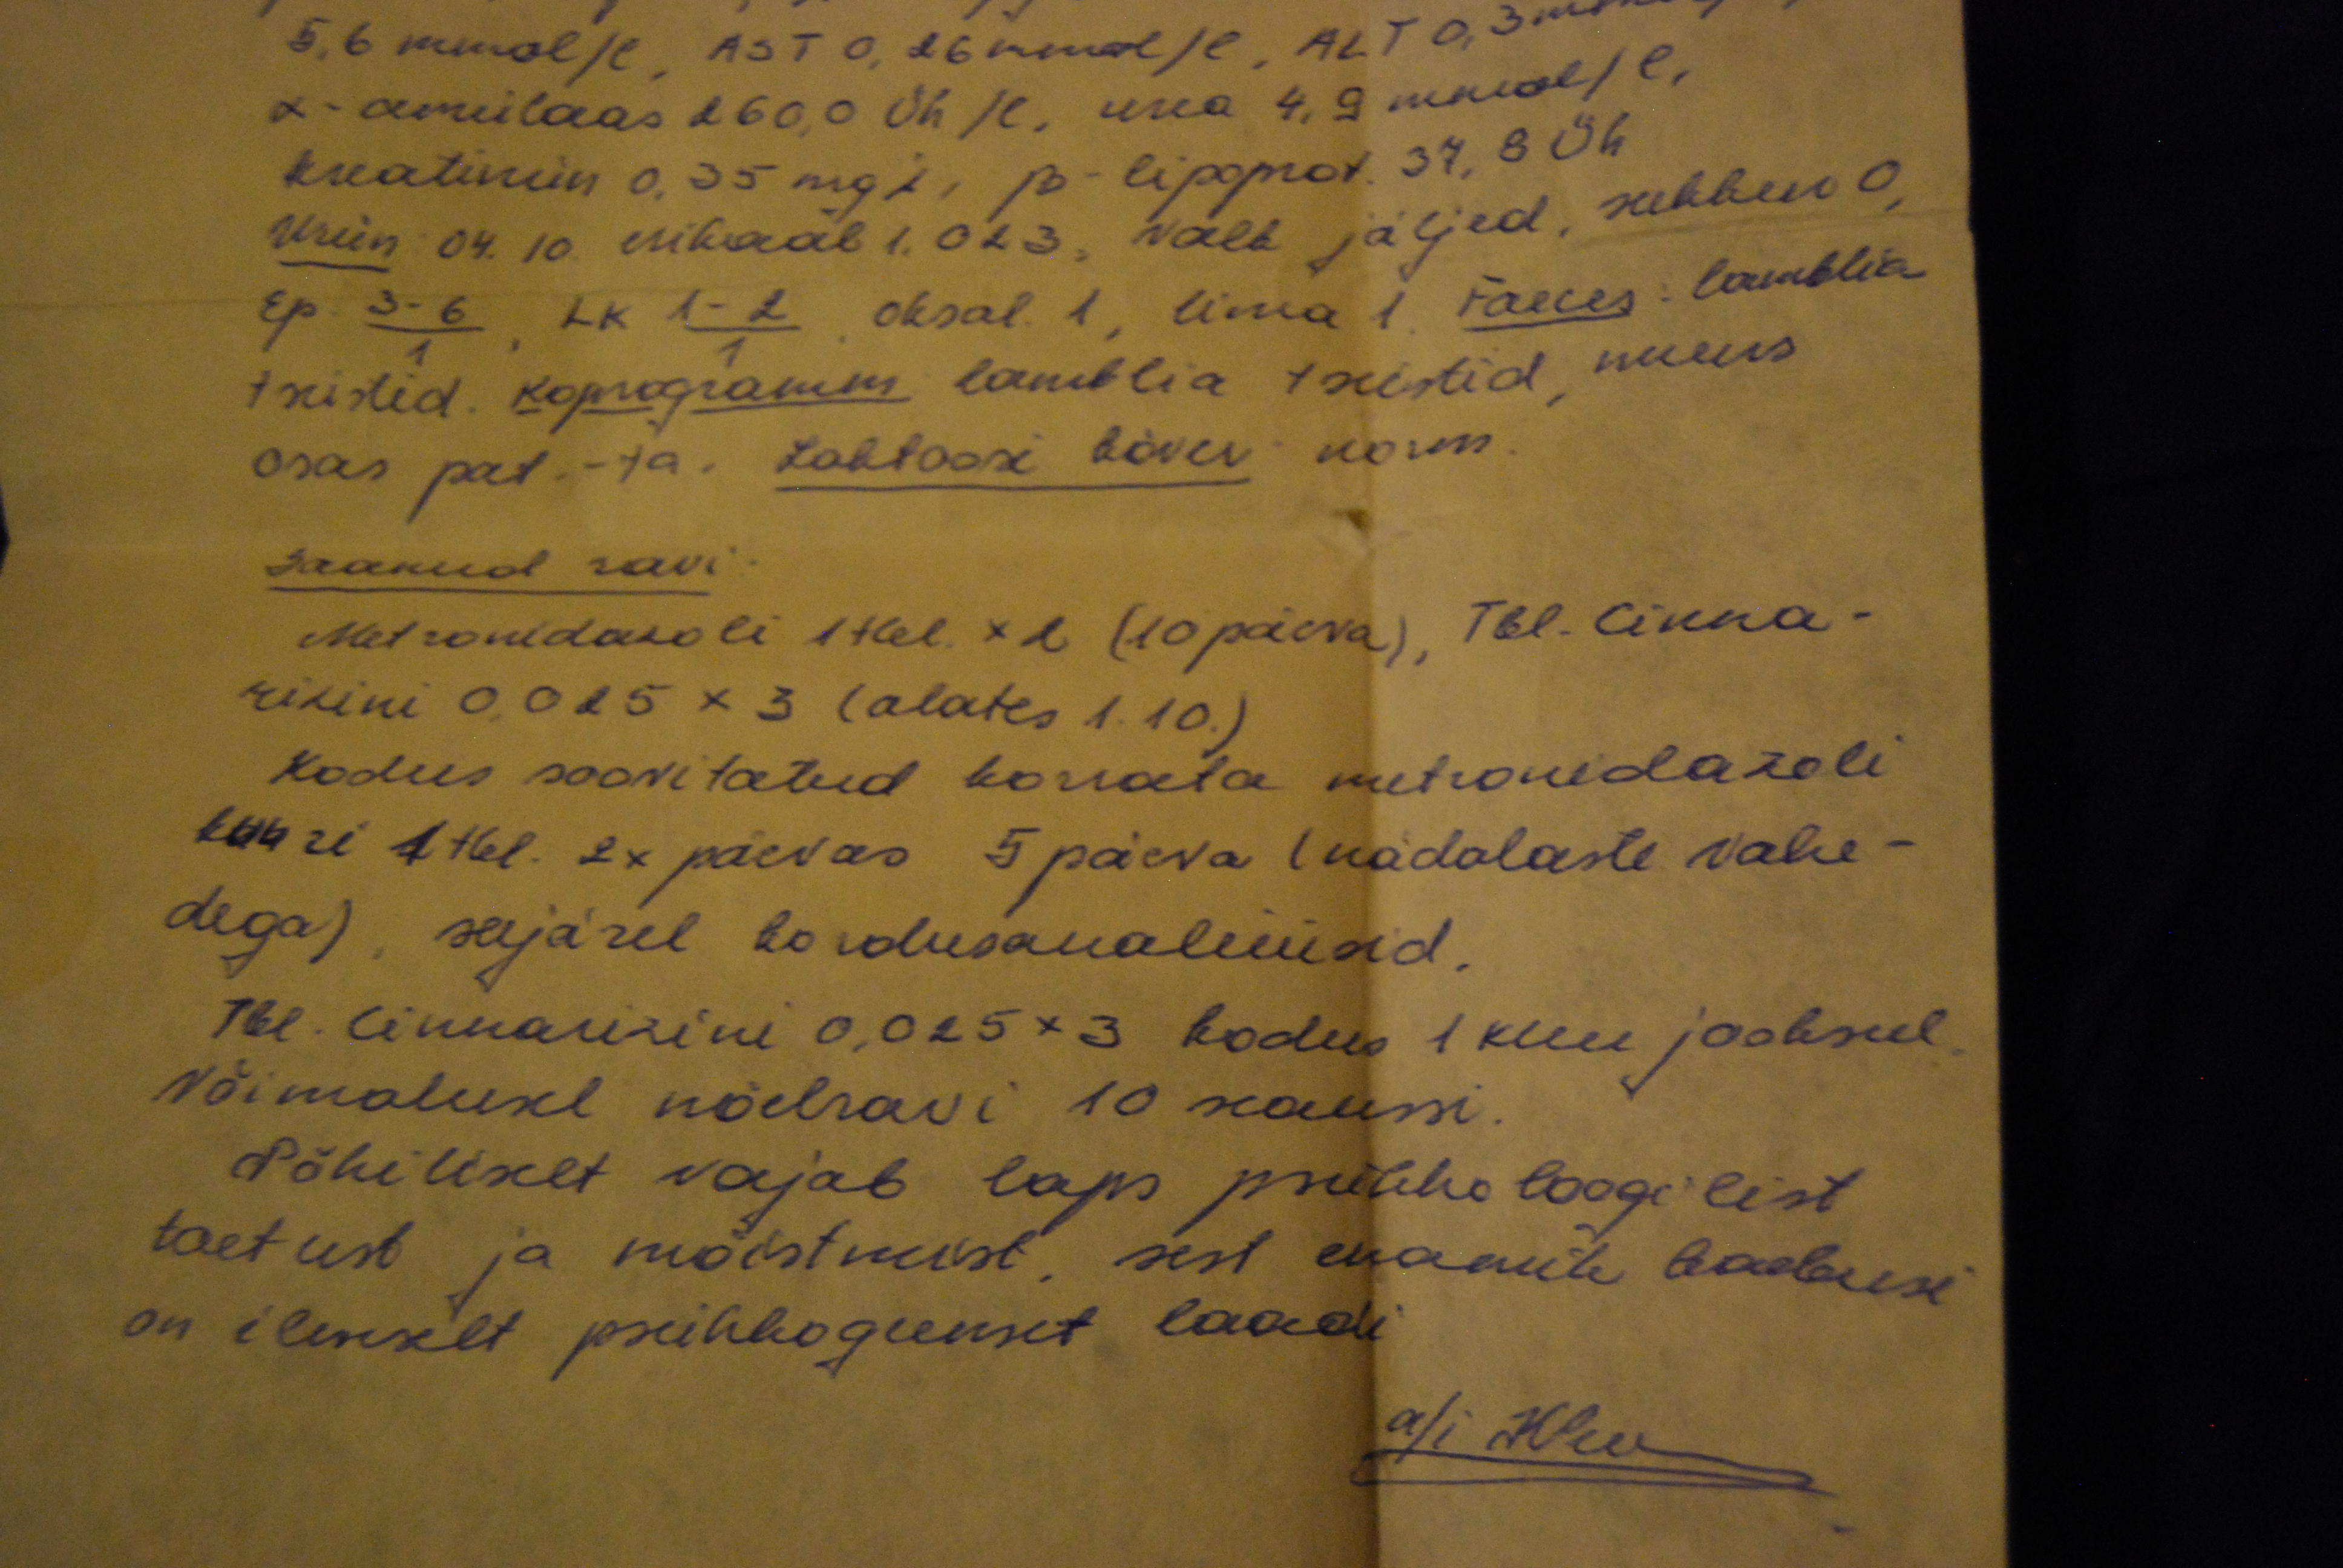 5,6 mmol/l, AST 0,26 mmol/l, ALT 0,3
α-amülaas 260,0 Üh/l, urea 4,9 mmol/l,
kreatiniin 0,35 mg%, β-lipoprot. 37,8 Üh
Uriin 04.10. erikaal 1.023, valk jäljed, suhkur 0,
Ep. 3-6/1, LK 1-2/1, oksal. 1, lima 1. Faeces: lamblia
tsüstid. Koprogramm lamblia tsüstid, muus
osas pat.-ta. Laktoosi kõver norm.
Saanud ravi:
Metronidasoli 1 tbl. x 2 (10 päeva), Tbl. Cinna-
rizini 0,025 x 3 (alates 1.10.)
Kodus soovitatud korrata metronidazoli
kuuri 1 tbl. 2x päevas 5 päeva (nädalaste vahe-
dega), seejärel kordusanalüüsid.
Tbl. Cinnarizini 0,025 x 3 kodus 1 kuu jooksul.
Võimalusel nõelravi 10 seanssi.
Põhiliselt vajab laps psühholoogilist
toetust ja mõistmist, sest enamik kaebusi
on ilmselt psühhogeenset laadi
a/i